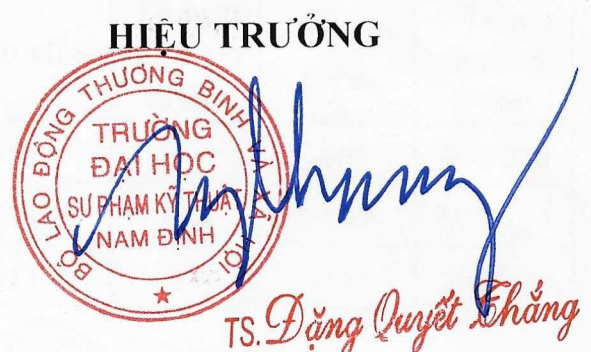 HIỆU TRƯỞNG
BỘ LAO ĐỘNG THƯƠNG BINH VÀ XÃ HỘI
TRƯỜNG
ĐẠI HỌC
SƯ PHẠM KỸ THUẬT
NAM ĐỊNH
TS. Đặng Quyết Thắng